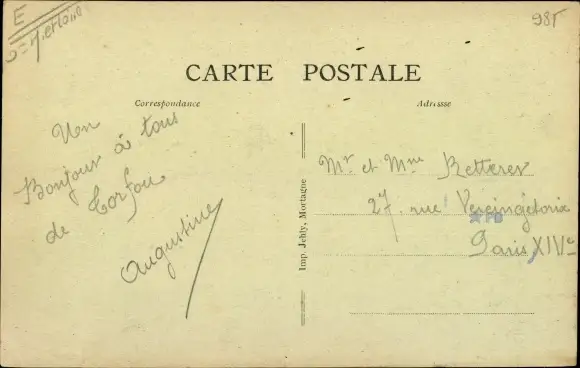 E
98T
CARTE POSTALE
Correspondance
Adresse
Un
Bonjour à tous
de Corfou
Augustine
Imp. Jehly, Mortagne
Mr et Mme Retterer
27, rue Vercingétorix
PB
Paris XIVe